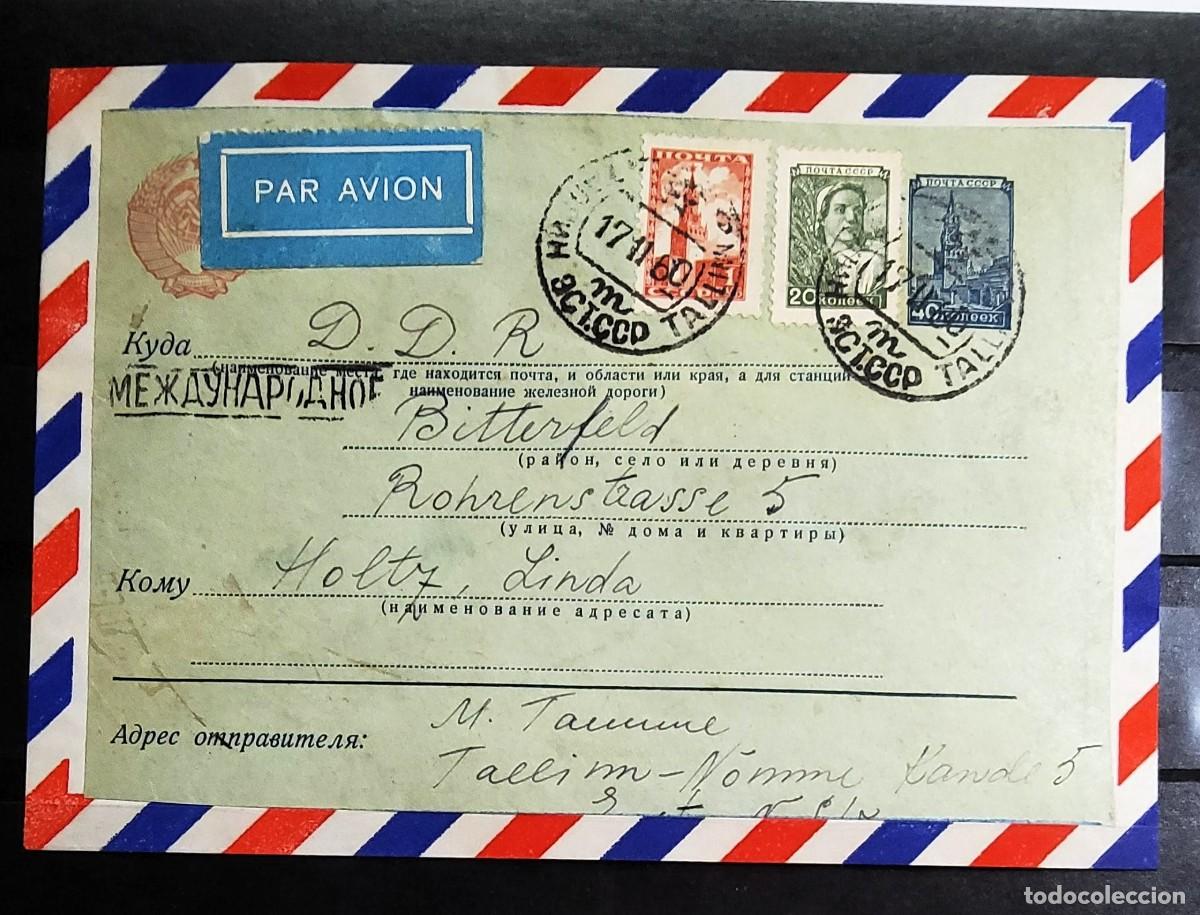 PAR AVION
ПОЧТА
ПОЧТА СССР
20 КОПЕЕК
ПОЧТА СССР
40 КОПЕЕК
17 11 60
m
ЭСТ.ССР TALLINN
m
ЭСТ.ССР TALL
Куда D. D. R
(наименование места, где находится почта, и области или края, а для станций
наименование железной дороги)
МЕЖДУНАРОДНОЕ
Bitterfeld
(район, село или деревня)
Rohrenstrasse 5
(улица, № дома и квартиры)
Кому Holtz, Linda
(наименование адресата)
M. Tamme
Адрес отправителя:
Tallinn-Nõmme Kande 5
todocoleccion